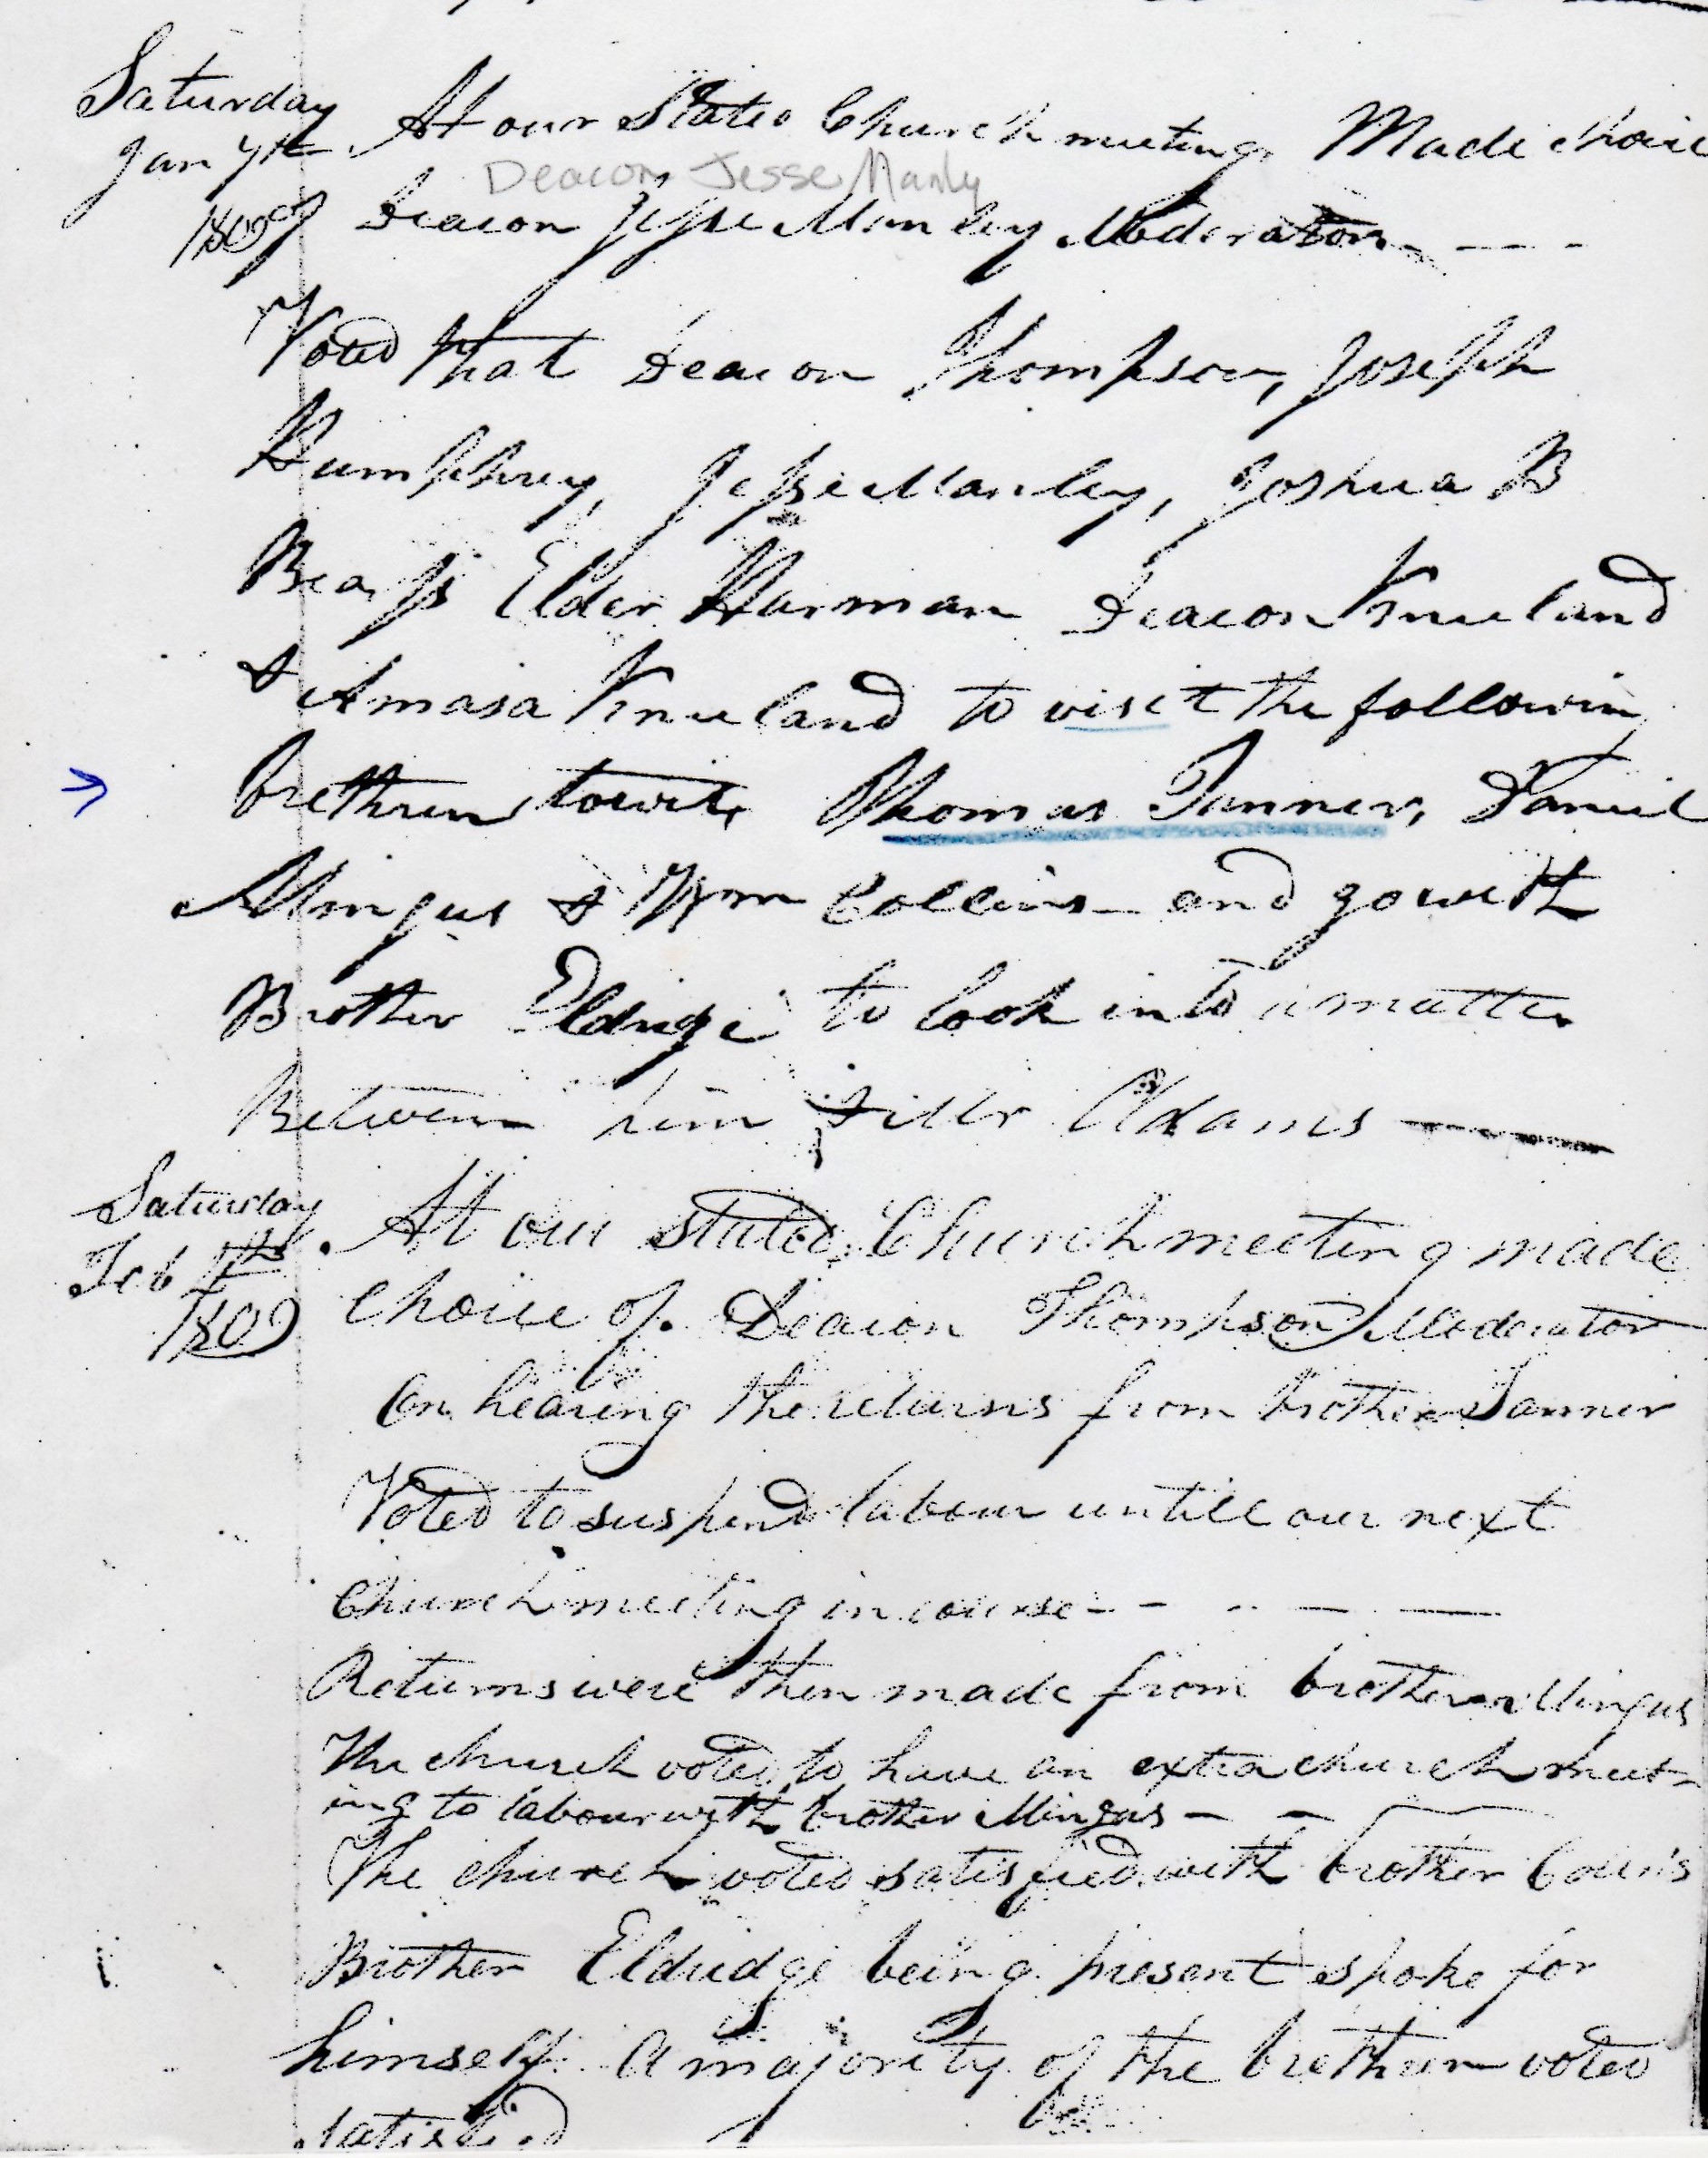 Saturday
Jan 7th
1809
At our Stated Church meeting Made choice
Deacon Jesse Manly
of Deacon Jesse Manley Moderator - - - -
Voted that Deacon Thompson, Joseph
Humphrey, Jesse Manley, Joshua B
Bearss Elder Harman Deacon Kneeland
& Amasa Kneeland to visit the following
brethren towit Thomas Tanner, Daniel
Mingus & Wm Collins - and go with
Brother Eldrige to look into a matter
Between him & Mr Adams —
Saturday
Feb 4th
1809
At our stated Church meeting made
choice of Deacon Thompson Moderator
On hearing the returns from brother Tanner
Voted to suspend labour untill our next
Church meeting in course - - - — —
Returns were then made from brother Mingus
The church voted to have an extra church meet-
ing to labour with brother Mingus - - —
The church voted satisfied with brother Colins
Brother Eldridge being present spoke for
himself. A majority of the brethren voted
satisfied